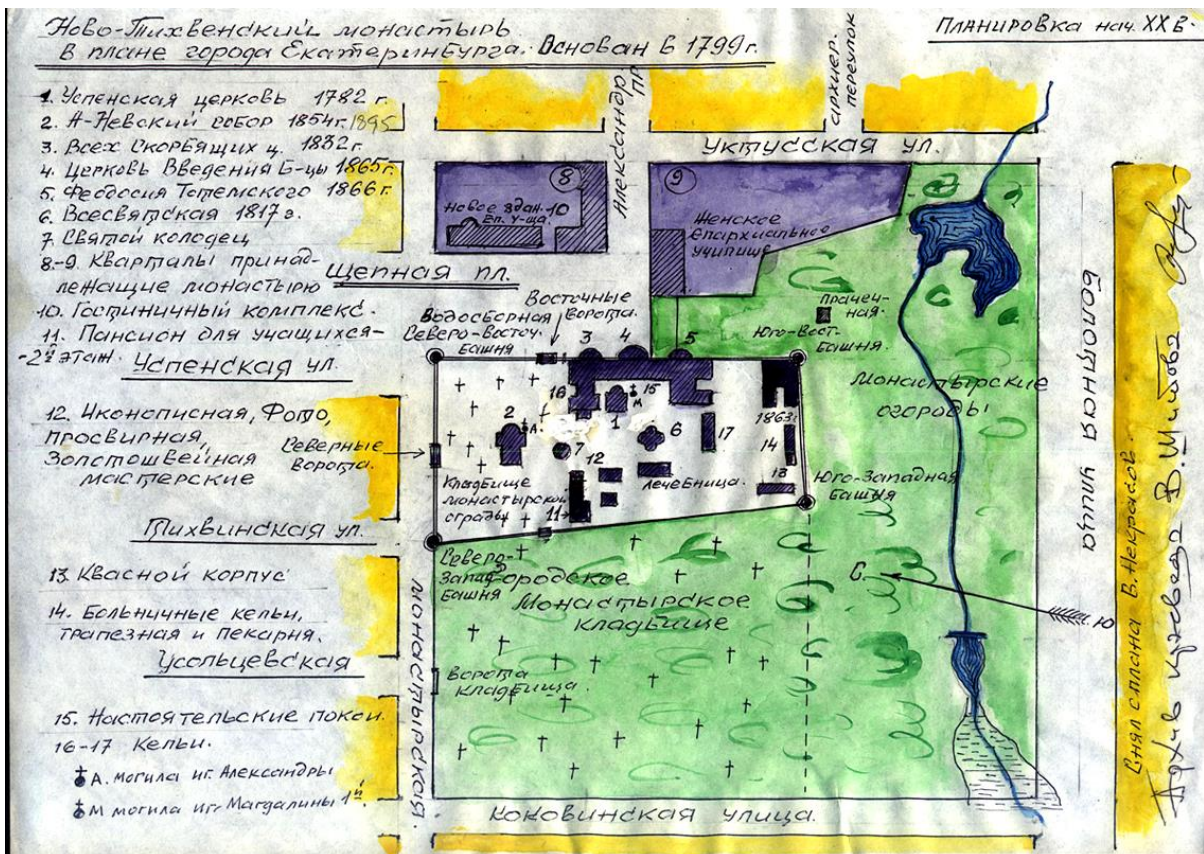 Ново-Тихвенский монастырь
в плане города Екатеринбурга. Основан в 1799 г.
Планировка нач. XX в.
1. Успенская церковь 1782 г.
2. А-Невский собор 1854г. 1895
3. Всех Скорбящих ц. 1832 г.
4. Церковь Введения Б-цы 1865 г.
5. Феодосия Тотемского 1866 г.
6. Всесвятская 1817 г.
7. Святой колодец
8.-9. Кварталы принад-
лежащие монастырю
10. Гостиничный комплекс.
11. Пансион для учащихся-
-2й этаж.
12. Иконописная, Фото,
просвирная,
Золотошвейная
мастерские
13. Квасной корпус
14. Больничные кельи,
трапезная и пекарня.
15. Настоятельские покои.
16-17 Кельи.
А. могила иг. Александры
М могила иг. Магдалины 1й.
Успенская ул.
Тихвинская ул.
Усольцевская
Щепная пл.
Александр.
пр.
архиер.
переулок
Уктусская ул.
8
Новое здан. 10
Еп. у-ща
9
Женское
Епархиальное
училище
Восточные
Ворота.
Водосборная
Северо-Восточ.
Башня
3
4
5
Прачеч-
ная.
Юго-Вост.
Башня.
Монастырские
огороды
16
15
М
2
А.
1
6
7
17
1863г.
14
13
12
11
Лечебница.
Кладбище
монастырской
ограды
Северные
ворота.
Юго-Западная
Башня
Северо-
Запад
Башня
Городское
Монастырское
кладбище
Ворота
кладбища.
С.
Ю
Монастырская.
Коковинская улица.
Болотная улица
Снял с плана В. Некрасов.
Архив краеведа В. Шитова